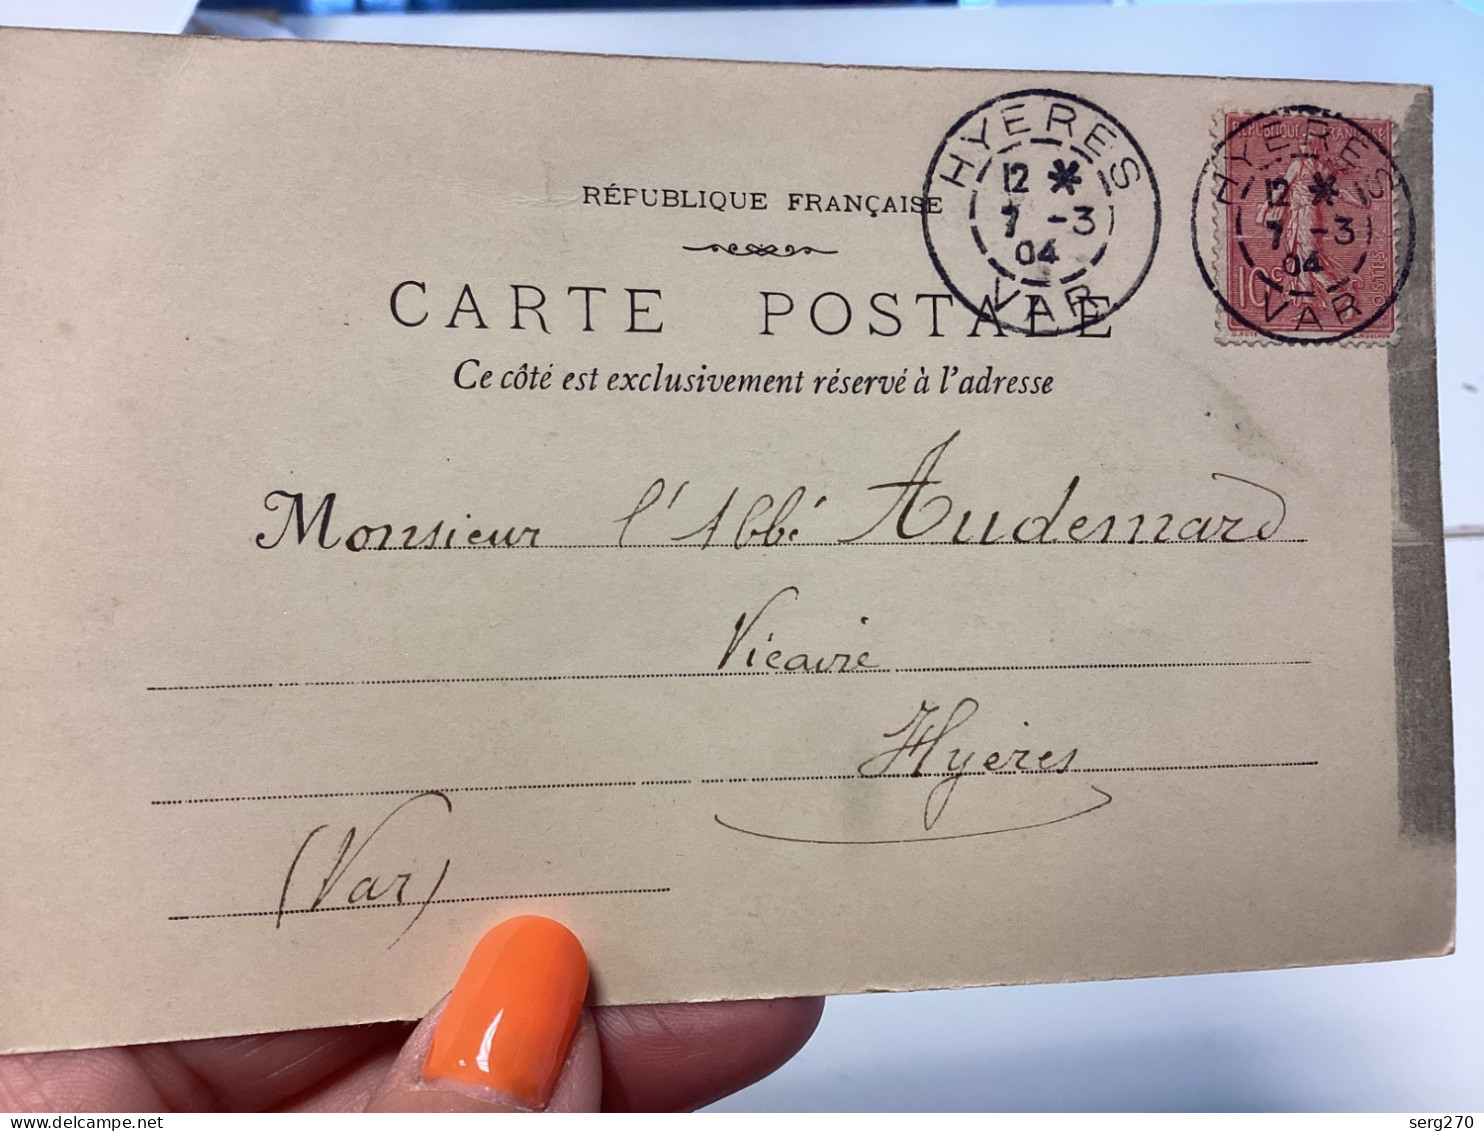 RÉPUBLIQUE FRANÇAISE
HYERES
12 *
7 -3
04
VAR
HYERES
12 *
7 -3
04
VAR
REPUBLIQUE FRANÇAISE
10c
POSTES
CARTE POSTALE
Ce côté est exclusivement réservé à l'adresse
Monsieur l'Abbé Audemard
Vicaire
Hyères
(Var)
delcampe.net
serg270